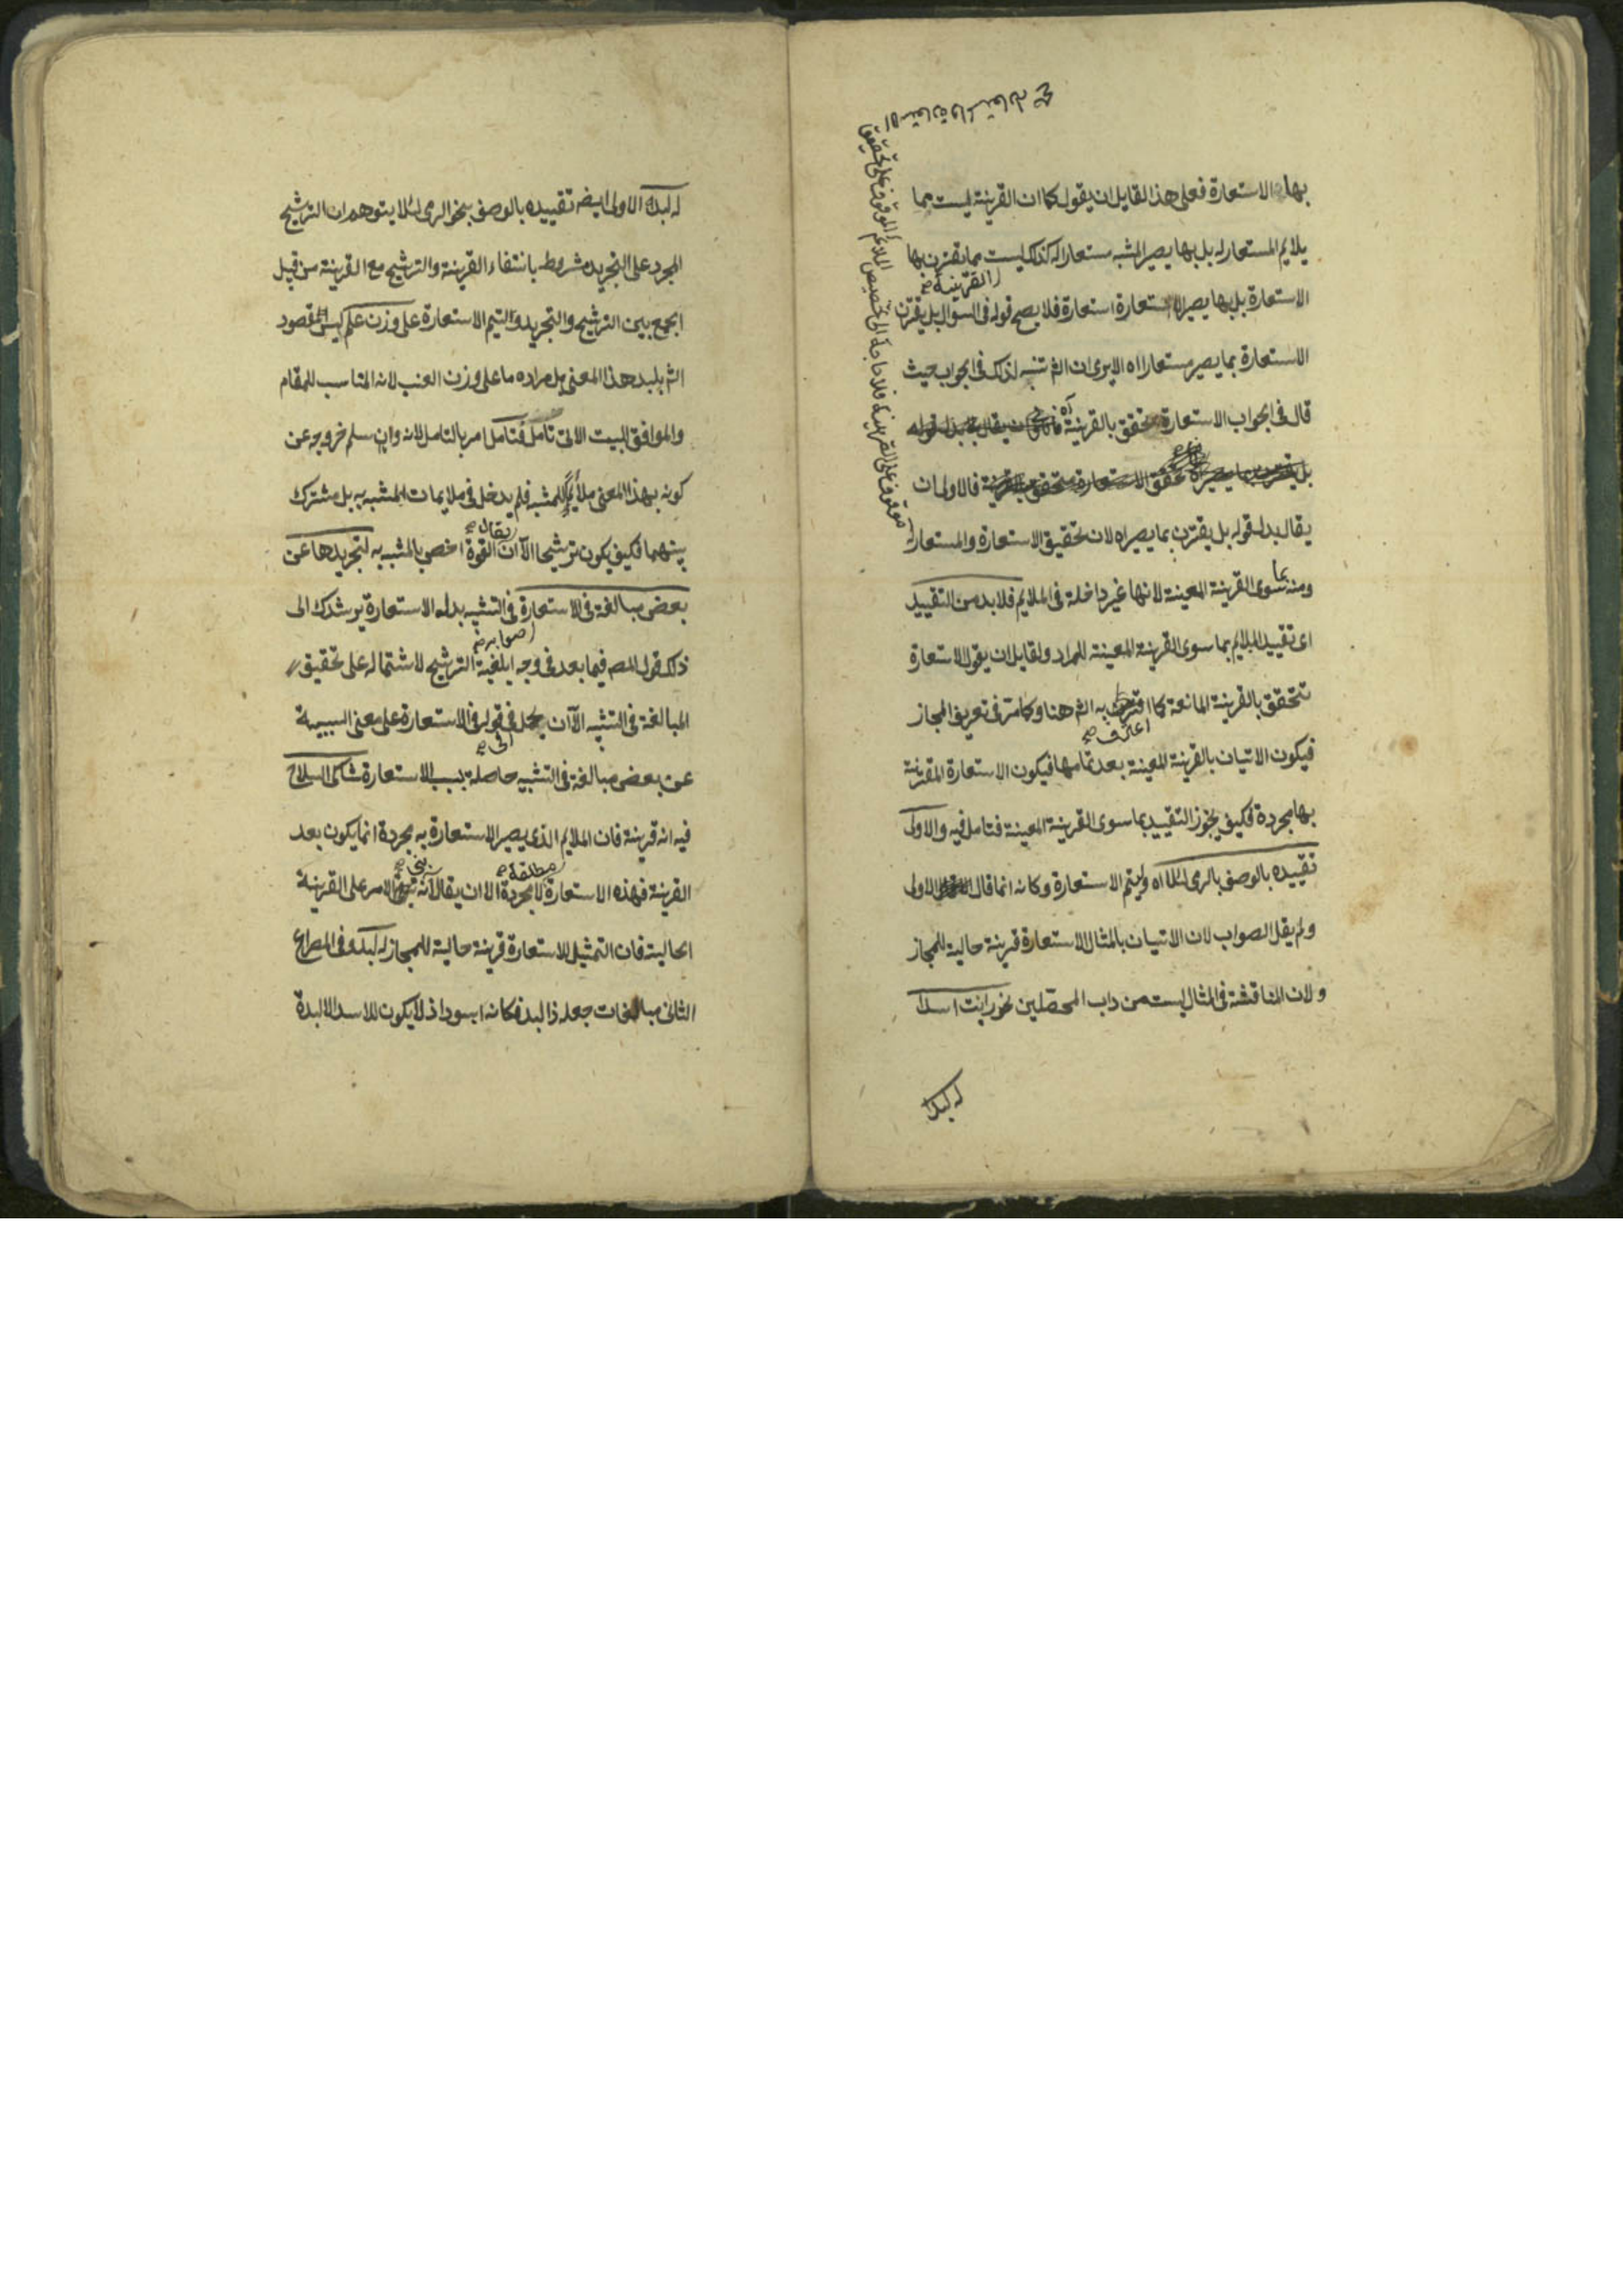 بها الاستعارة فعلى هذا القايل ان يقول كما ان القرينة ليست مما
يلايم المستعار له بل بها يصير المشبه مستعارا له كذلك ليست مما يقترن بها
القرينة صح
الاستعارة بل بها يصير الاستعارة استعارة فلا يصح قوله في السؤال بل يقترن
الاستعارة بما يصير مستعارا اه الا يرى ان الش تنبه لذلك في الجواب حيث
قال في الجواب الاستعارة تحقق بالقرينة اه
تحقق الاستعارة فالاولى ان
يقال بدل قوله بل يقترن بما يصير اه لان تحقيق الاستعارة والمستعار له
موقوف على القرينة فلا حاجة الى تخصيص الملايم الموقوف على تحقيق
الاستعارة والمستعار له صح
ومنه بما سوى القرينة المعينة لانها غير داخلة في الملايم فلا بد من التقييد
اى تقييد الملايم بما سوى القرينة المعينة للمراد ولقايل ان يقول الاستعارة
تتحقق بالقرينة المانعة كما اعترف به الش هنا وكما مر في تعريف المجاز
اعترف صح
فيكون الاتيان بالقرينة المعينة بعد تمامها فيكون الاستعارة المقترنة
بها مجردة فكيف يجوز التقييد بما سوى القرينة المعينة فتامل فيه والاولى
تقييده بالوصف بالرمى لئلا اه وليتم الاستعارة وكانه انما قال الاولى
ولم يقل الصواب لان الاتيان بالمثال للاستعارة قرينة حالية للمجاز
ولان المناقشة في المثال ليست من داب المحصلين نحو رايت اسدا
له لبد
له لبد الاولى ايضه تقييده بالوصف بنحو الرمى لئلا يتوهم ان الترشيح
المجرد على التجريد مشروط بانتفاء القرينة والترشيح مع القرينة من قبيل
الجمع بين الترشيح والتجريد وليتم الاستعارة على وزن علم ليس المقصود
الش بلبد هذا المعنى بل مراده ما على وزن العنب لانه المناسب للمقام
والموافق للبيت الاتى تامل فتامل امر بالتامل لانه وان سلم خروجه عن
كونه بهذا المعنى ملايما للمشبه فلم يدخل في ملايمات المشبه به بل مشترك
يقال صح
بينهما فكيف يكون ترشيحا الا ان القوة اخص بالمشبه به لتجريدها عن
بعض مبالغة في الاستعارة في التشبيه بدل الاستعارة يرشدك الى
صوابه صح
ذلك قول المصـ فيما بعد في وجه ابلغية الترشيح لاشتماله على تحقيق
المبالغة في التشبيه الا ان يحمل في قوله في الاستعارة على معنى السببية
اى صح
عن بعض مبالغة في التشبيه حاصلة بسبب الاستعارة شاكى السلاح
فيه انه قرينة فان الملايم الذى يصير الاستعارة به مجردة انما يكون بعد
مطلقة صح
بنى صح
القرينة فهذه الاستعارة لا مجردة الا ان يقال انه الامر على القرينة
الحالية فان التمثيل للاستعارة قرينة حالية للمجاز له لبد وفي المصراع
الثانى مبالغات جعله ذا لبد فكانه اسود اذ لا يكون للاسد الا لبدة